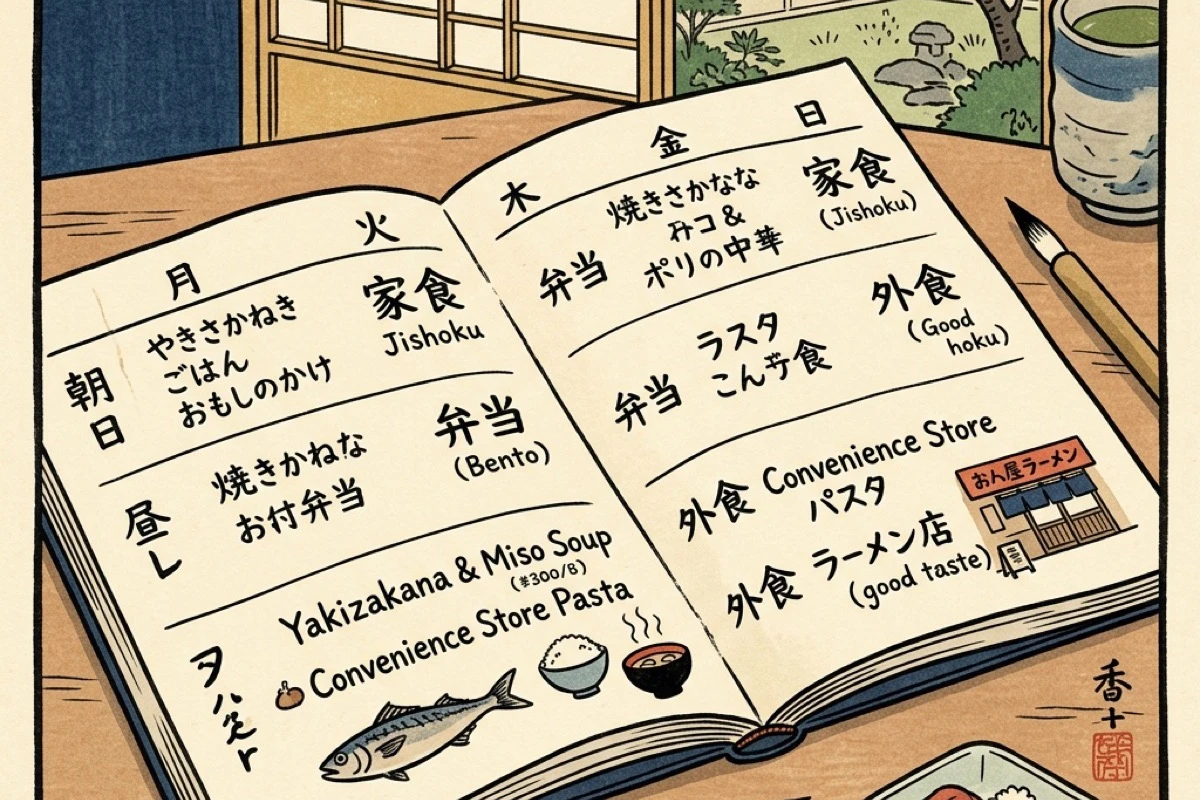 月
火
朝
日
やきさかねき
ごはん
おもしのかけ
家食
Jishoku
昼
し
焼きかねな
お付弁当
弁当
(Bento)
Yakizakana & Miso Soup
Convenience Store Pasta
木
金
日
弁当
焼きさかなな
コ &
ポリの中華
家食
(Jishoku)
弁当
ラスタ
こん 食
外食
(Good
hoku)
外食
Convenience Store
パスタ
外食
ラーメン店
(good taste)
おん屋ラーメン
香十